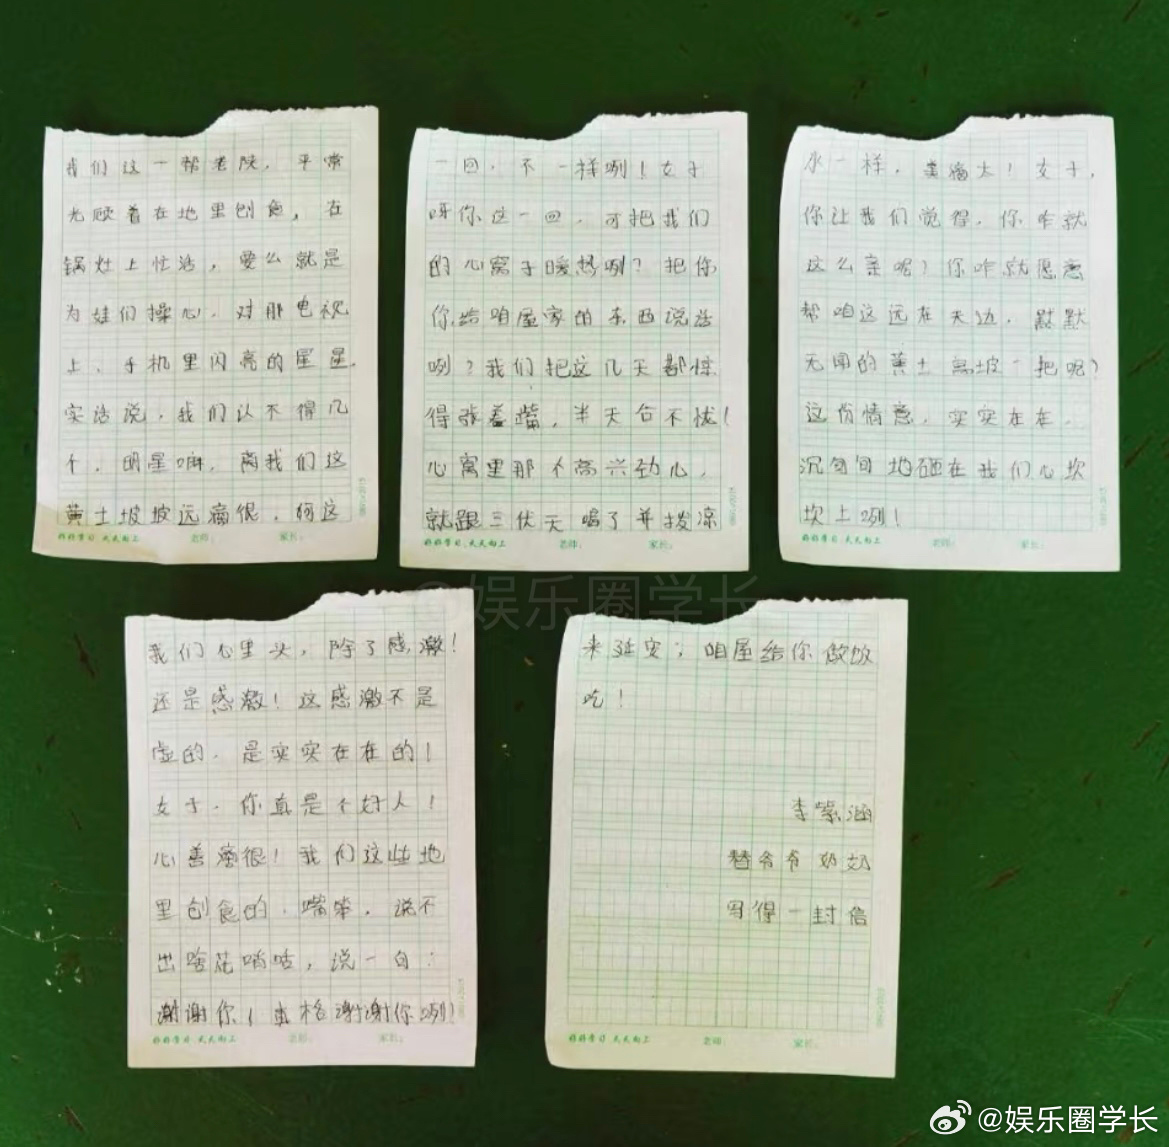 我们这一帮老陕，平常
光顾着在地里刨食，在
锅灶上忙活，要么就是
为娃们操心，对那电视
上、手机里闪亮的星星，
实话说，我们认不得几
个，明星嘛，离我们这
黄土坡坡远滴很，何这
好好学习、天天向上 老师： 家长：
一回，不一样咧！女子
呀你这一回，可把我们
的心窝子暖热咧？把你
你给咱屋家的东西说话
咧？我们把这几天都惊
得张着嘴，半天合不拢！
心窝里那个高兴劲儿，
就跟三伏天喝了井拨凉
好好学习、天天向上 老师： 家长：
水一样，美滴太！女子，
你让我们觉得，你咋就
这么亲呢？你咋就愿意
帮咱这远在天边，默默
无闻的黄土高坡一把呢？
这份情意，实实在在，
沉甸甸地砸在我们心坎
坎上咧！
好好学习、天天向上 老师： 家长：
我们心里头，除了感激！
还是感激！这感激不是
虚的，是实实在在的！
女子，你真是个好人！
心善滴很！我们这些地
里刨食的，嘴笨，说不
出啥花哨咕，说一句：
谢谢你！再格谢谢你咧！
好好学习、天天向上 老师： 家长：
来延安；咱屋给你做饭
吃！
李紫涵
替爷爷奶奶
写得一封信
好好学习、天天向上 老师： 家长：
@娱乐圈学长
@娱乐圈学长